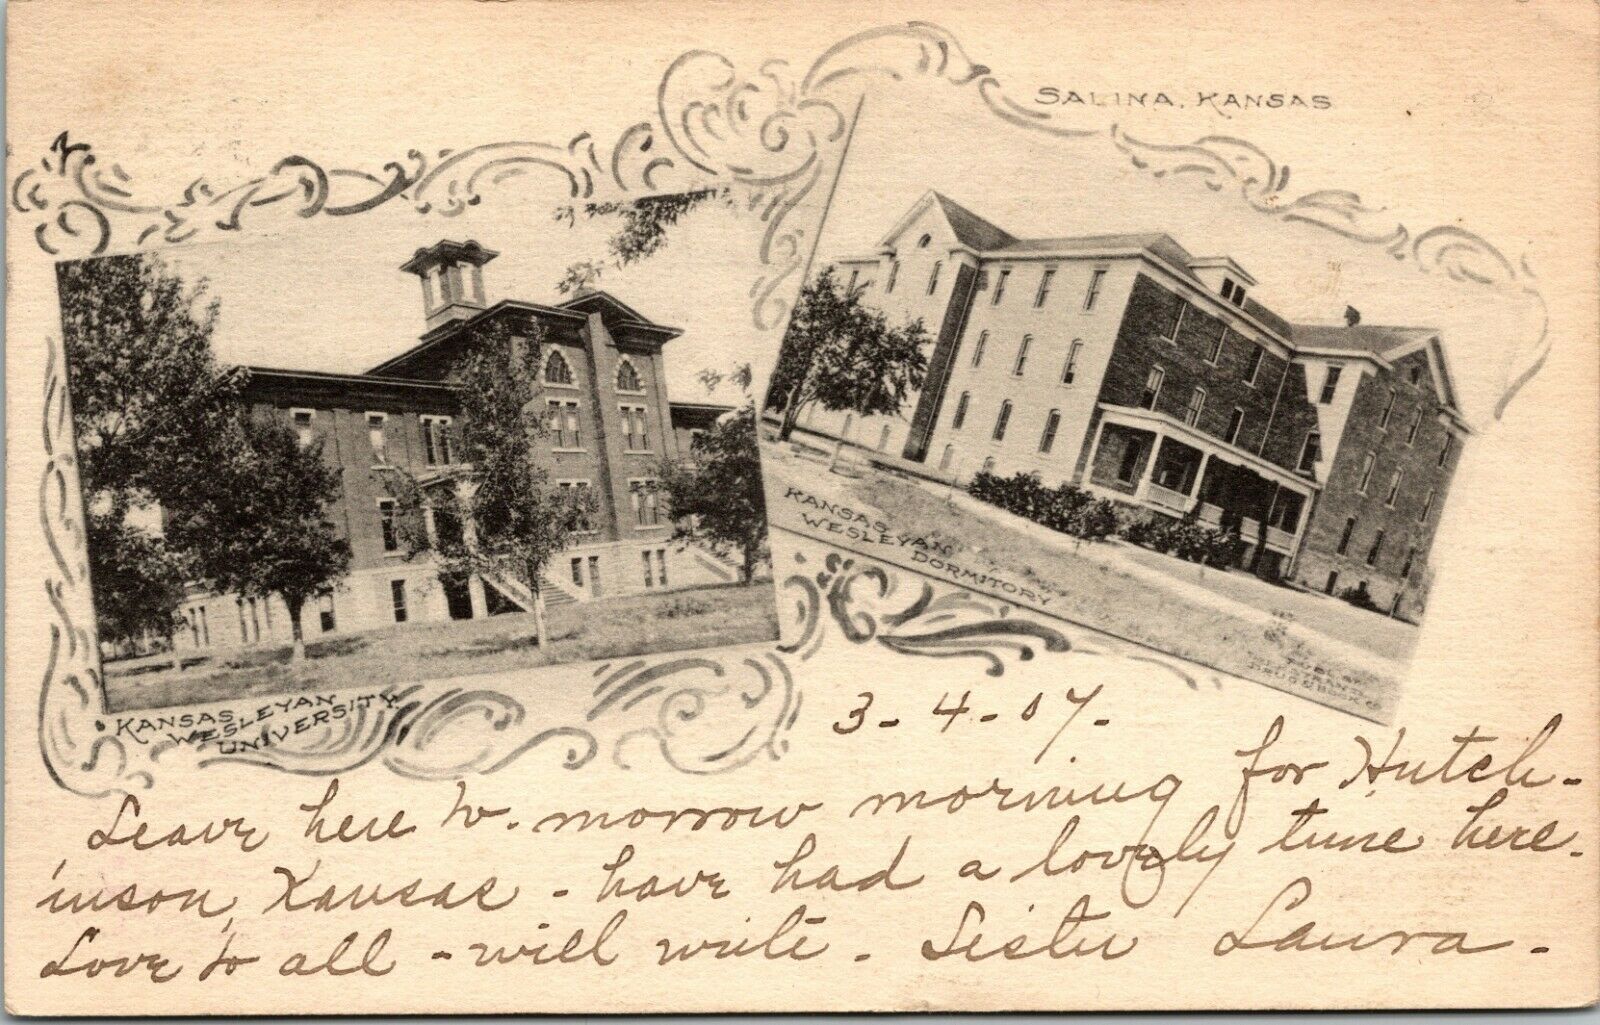 SALINA, KANSAS
KANSAS
WESLEYAN
DORMITORY
KANSAS
WESLEYAN
UNIVERSITY.
3-4-07-
Leave here to-morrow morning for Hutch-
inson, Kansas - have had a lovely time here.
Love to all - will write. Sister Laura-